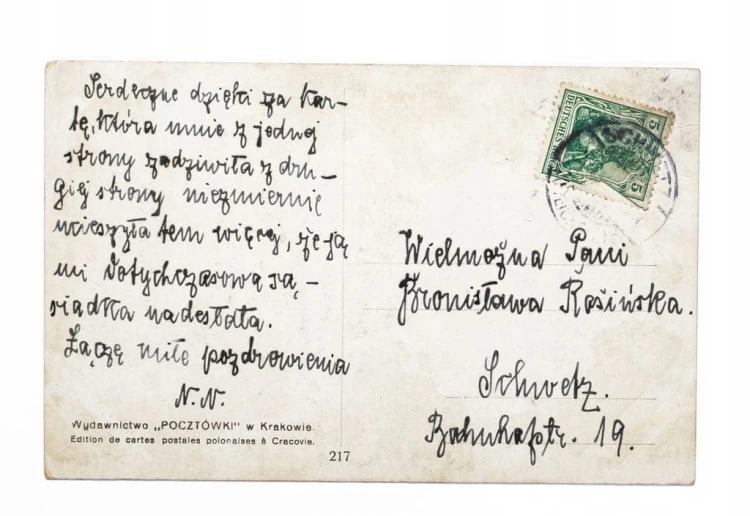 Serdeczne dzięki za kar-
tę, która mnie z jednej
strony zadziwiła z dru-
giej strony niezmiernie
ucieszyła tem więcej, że ją
mi dotychczasową są-
siadka nadesłała.
Łączę miłe pozdrowienia
N. N.
Wydawnictwo „POCZTÓWKI" w Krakowie.
Edition de cartes postales polonaises à Cracovie.
217
DEUTSCHES
5
5
SCHW
Wielmożna Pani
Bronisława Rosińska.
Schwetz.
Bahnhofstr. 19.